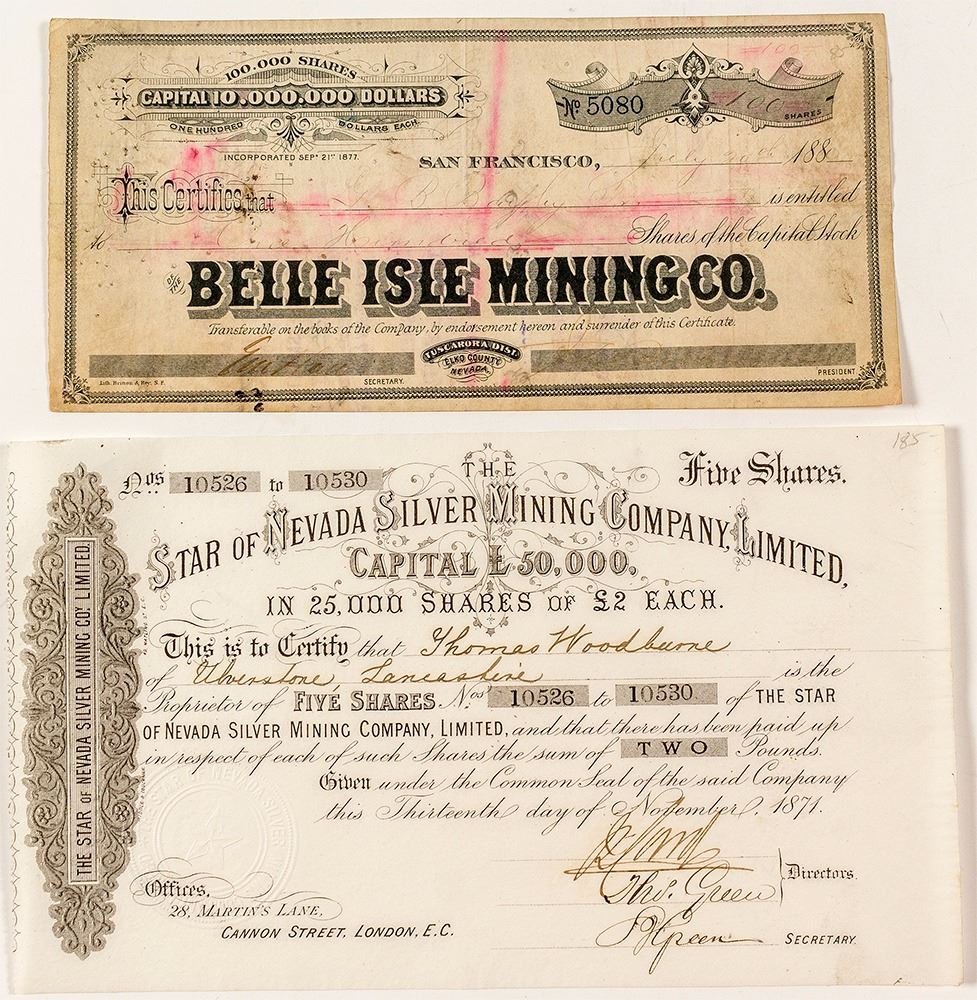 100.000 SHARES
CAPITAL 10.000.000 DOLLARS
ONE HUNDRED DOLLARS EACH
INCORPORATED SEPT 21ST 1877.
No 5080
100 SHARES
SAN FRANCISCO, July 188
This Certifies that is entitled
to One Hundred Shares of the Capital Stock
OF THE BELLE ISLE MINING CO.
Transferable on the books of the Company, by endorsement hereon and surrender of this Certificate.
TUSCARORA DIST.
ELKO COUNTY
NEVADA
SECRETARY.
PRESIDENT.
185-
Nos 10526 to 10530
Five Shares.
THE
STAR OF NEVADA SILVER MINING COMPANY, LIMITED,
CAPITAL £ 50,000.
IN 25,000 SHARES OF £2 EACH.
This is to Certify that Thomas Woodburne
of Ulverstone, Lancashire is the
Proprietor of FIVE SHARES Nos 10526 to 10530 of THE STAR
OF NEVADA SILVER MINING COMPANY, LIMITED, and that there has been paid up
in respect of each of such Shares the sum of TWO Pounds.
Given under the Common Seal of the said Company
this Thirteenth day of November, 1871.
Thos. Green
Directors.
Offices,
28, MARTIN'S LANE,
CANNON STREET, LONDON, E.C.
Green
SECRETARY.
THE STAR OF NEVADA SILVER MINING COY LIMITED.